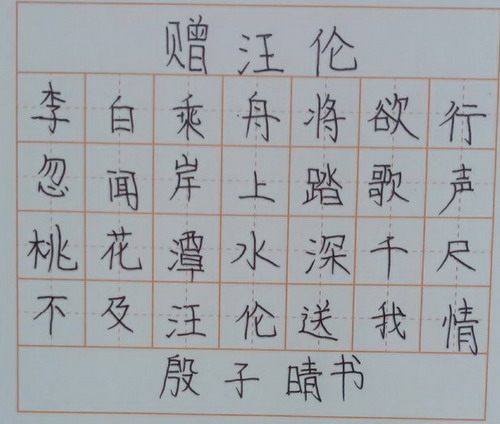 赠汪伦
李白乘舟将欲行
忽闻岸上踏歌声
桃花潭水深千尺
不及汪伦送我情
殷子晴书